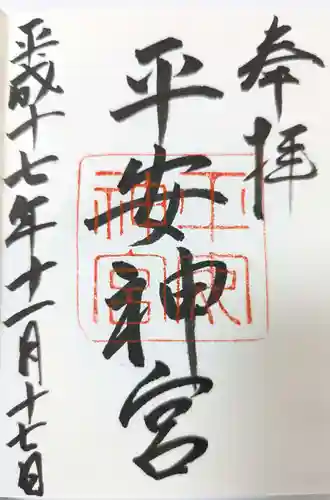 奉拝
平安神宮
平成十七年十一月十七日